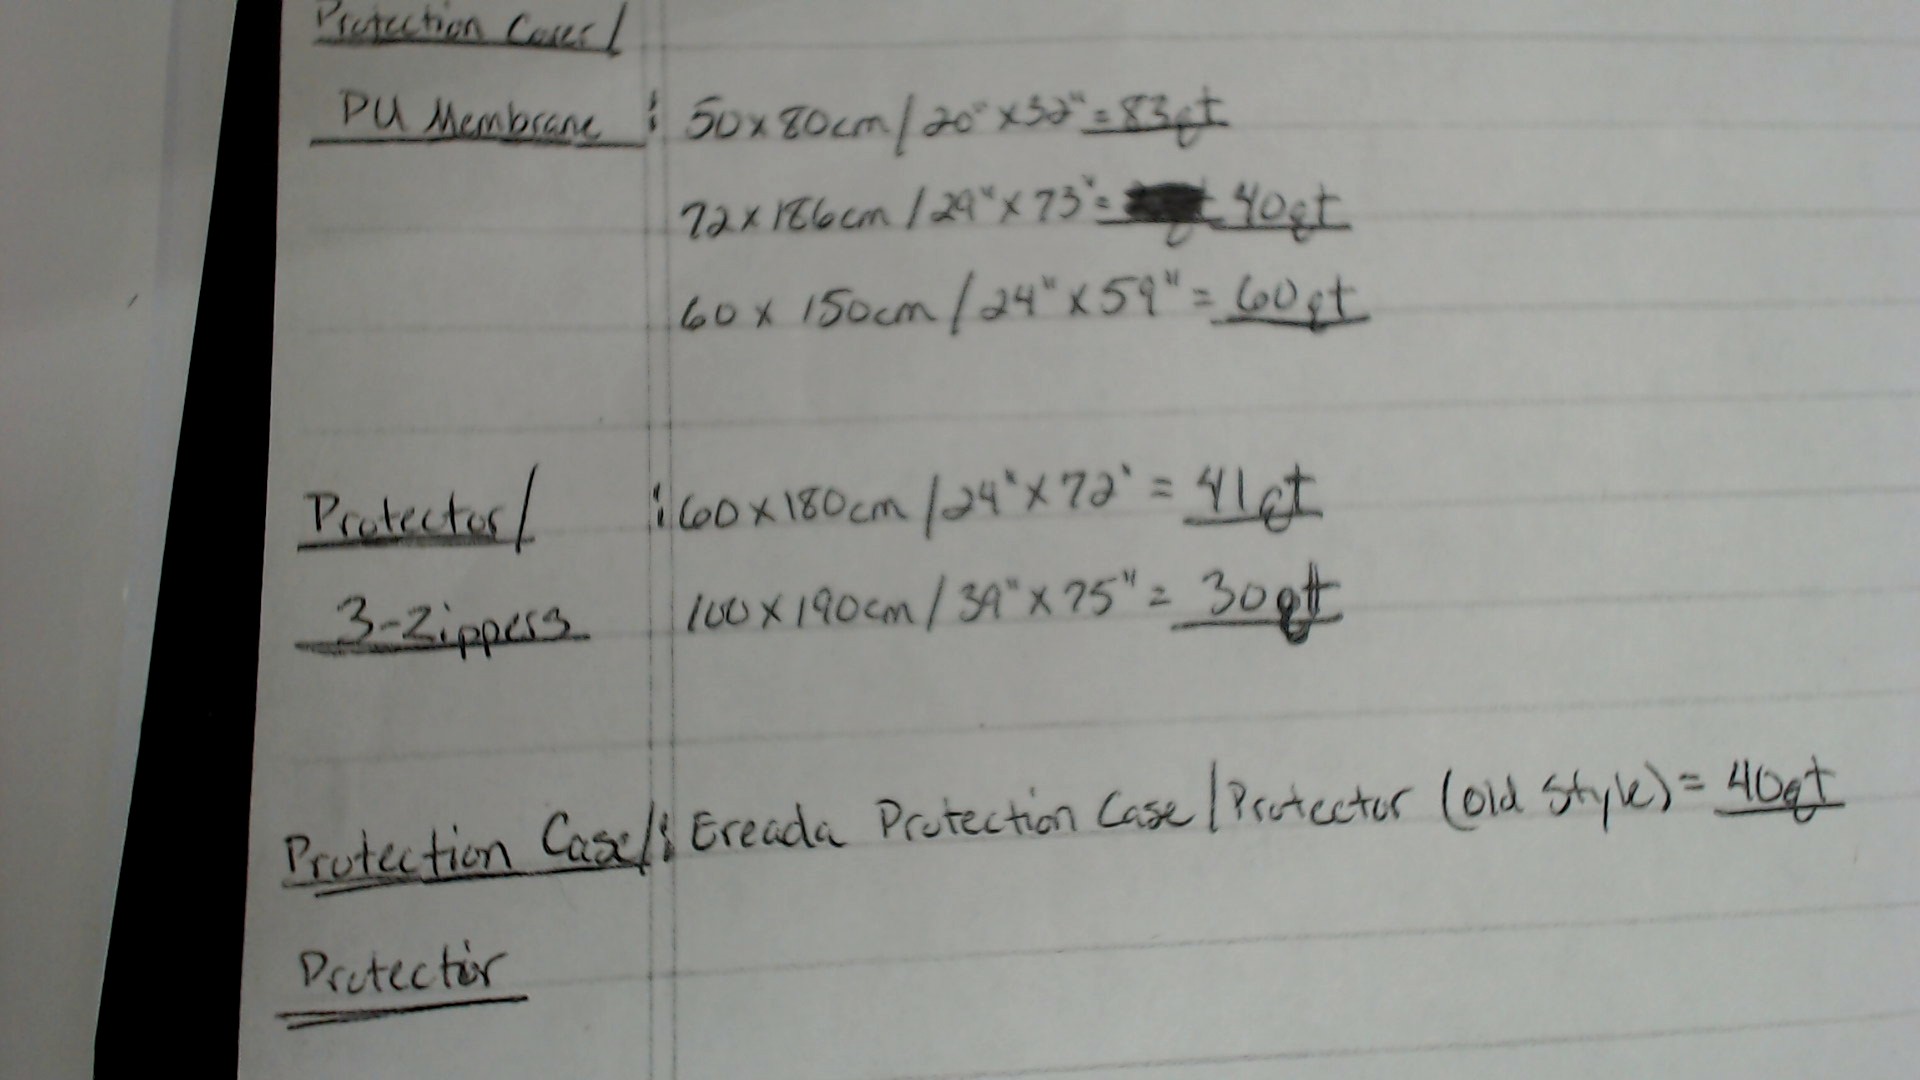 Protection Cover/
PU Membrane : 50x80cm/20"x32"=83qt
72x186cm/29"x73"= 40qt
60x150cm/24"x59"=60qt
Protector/ : 60x180cm/24"x72"=41qt
3-Zippers 100x190cm/39"x75"=30qt
Protection Case/: Ereada Protection Case/Protector (old style)=40qt
Protector